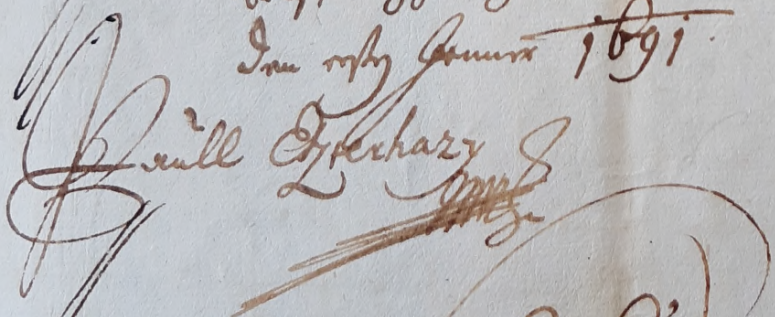 den ersten Jenner 1691.
Paull Eszterhazy